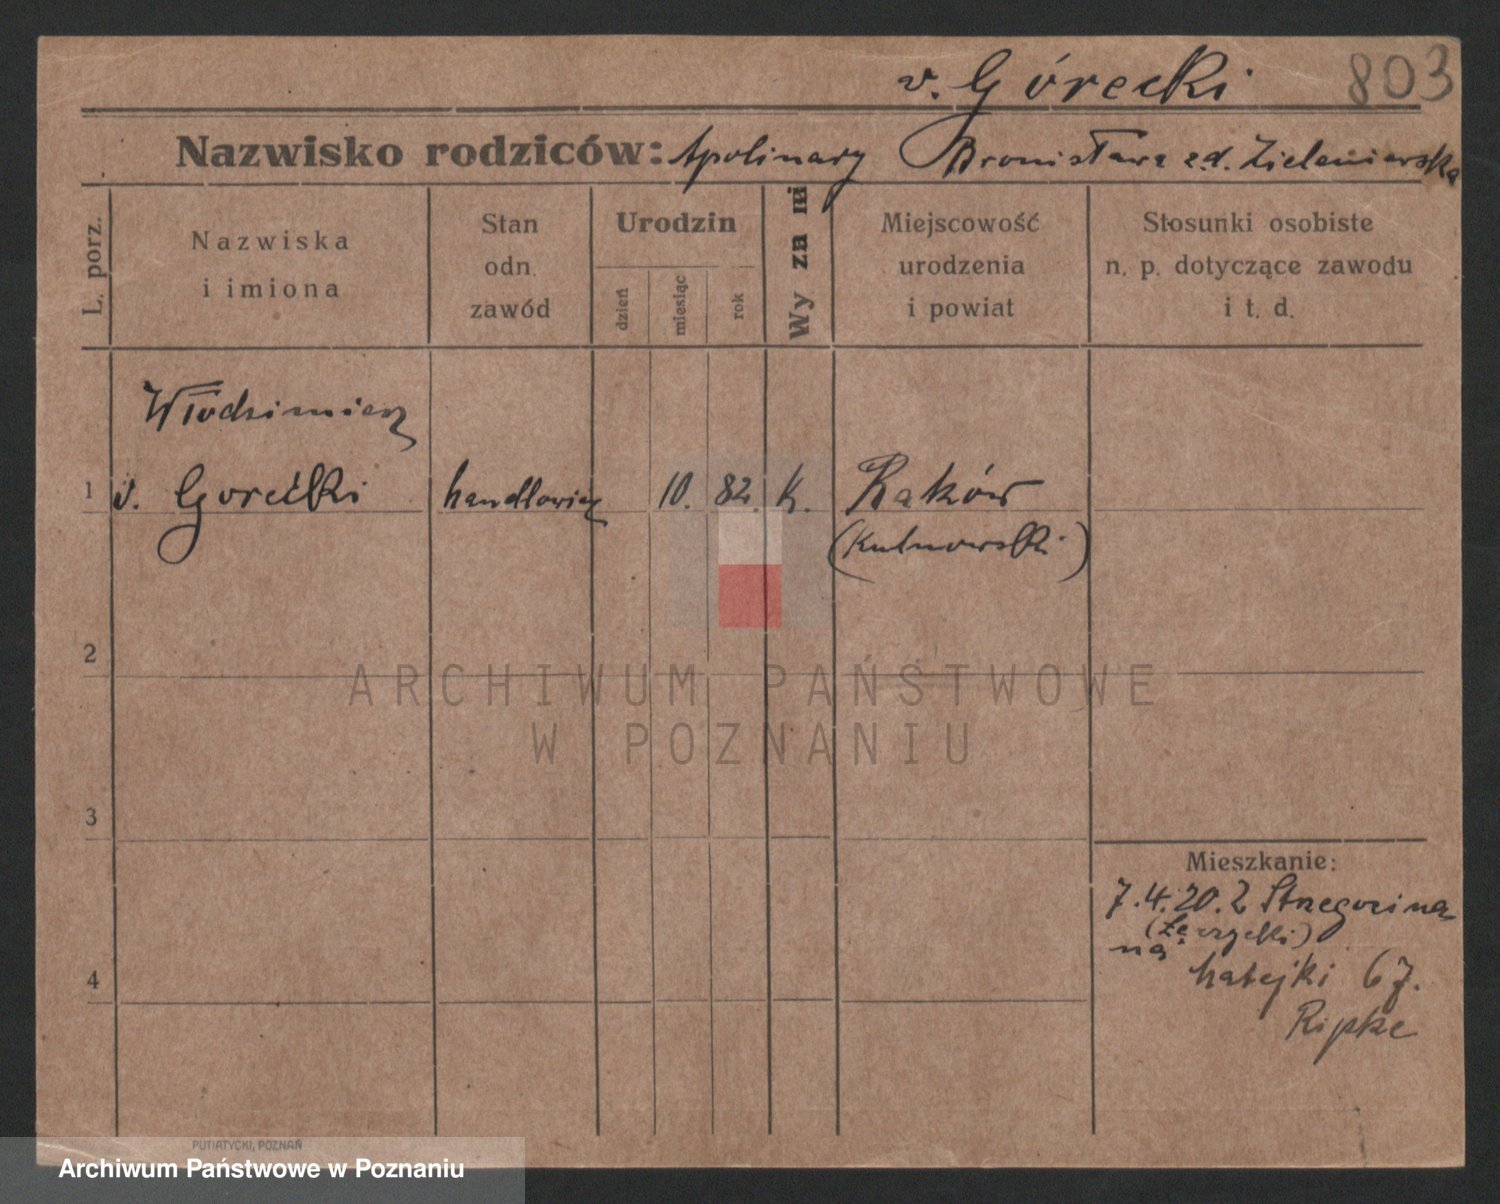 v. Górecki 803
Nazwisko rodziców: Apolinary Bronisława z.d. Zieleniewska
L. porz.
Nazwiska
i imiona
Stan
odn.
zawód
Urodzin
dzień
miesiąc
rok
Wyznani
Miejscowość
urodzenia
i powiat
Stosunki osobiste
n. p. dotyczące zawodu
i t. d.
Włodzimierz
1 v. Gorećki handlowiec 10. 82. K. Raków
(Kutnowski)
2
3
4
Mieszkanie:
7.4.20. z Strzegocina
(Łęczycki)
na
Matejki 67.
Ripke
ARCHIWUM PAŃSTWOWE
W POZNANIU
PUTIATYCKI, POZNAŃ
Archiwum Państwowe w Poznaniu